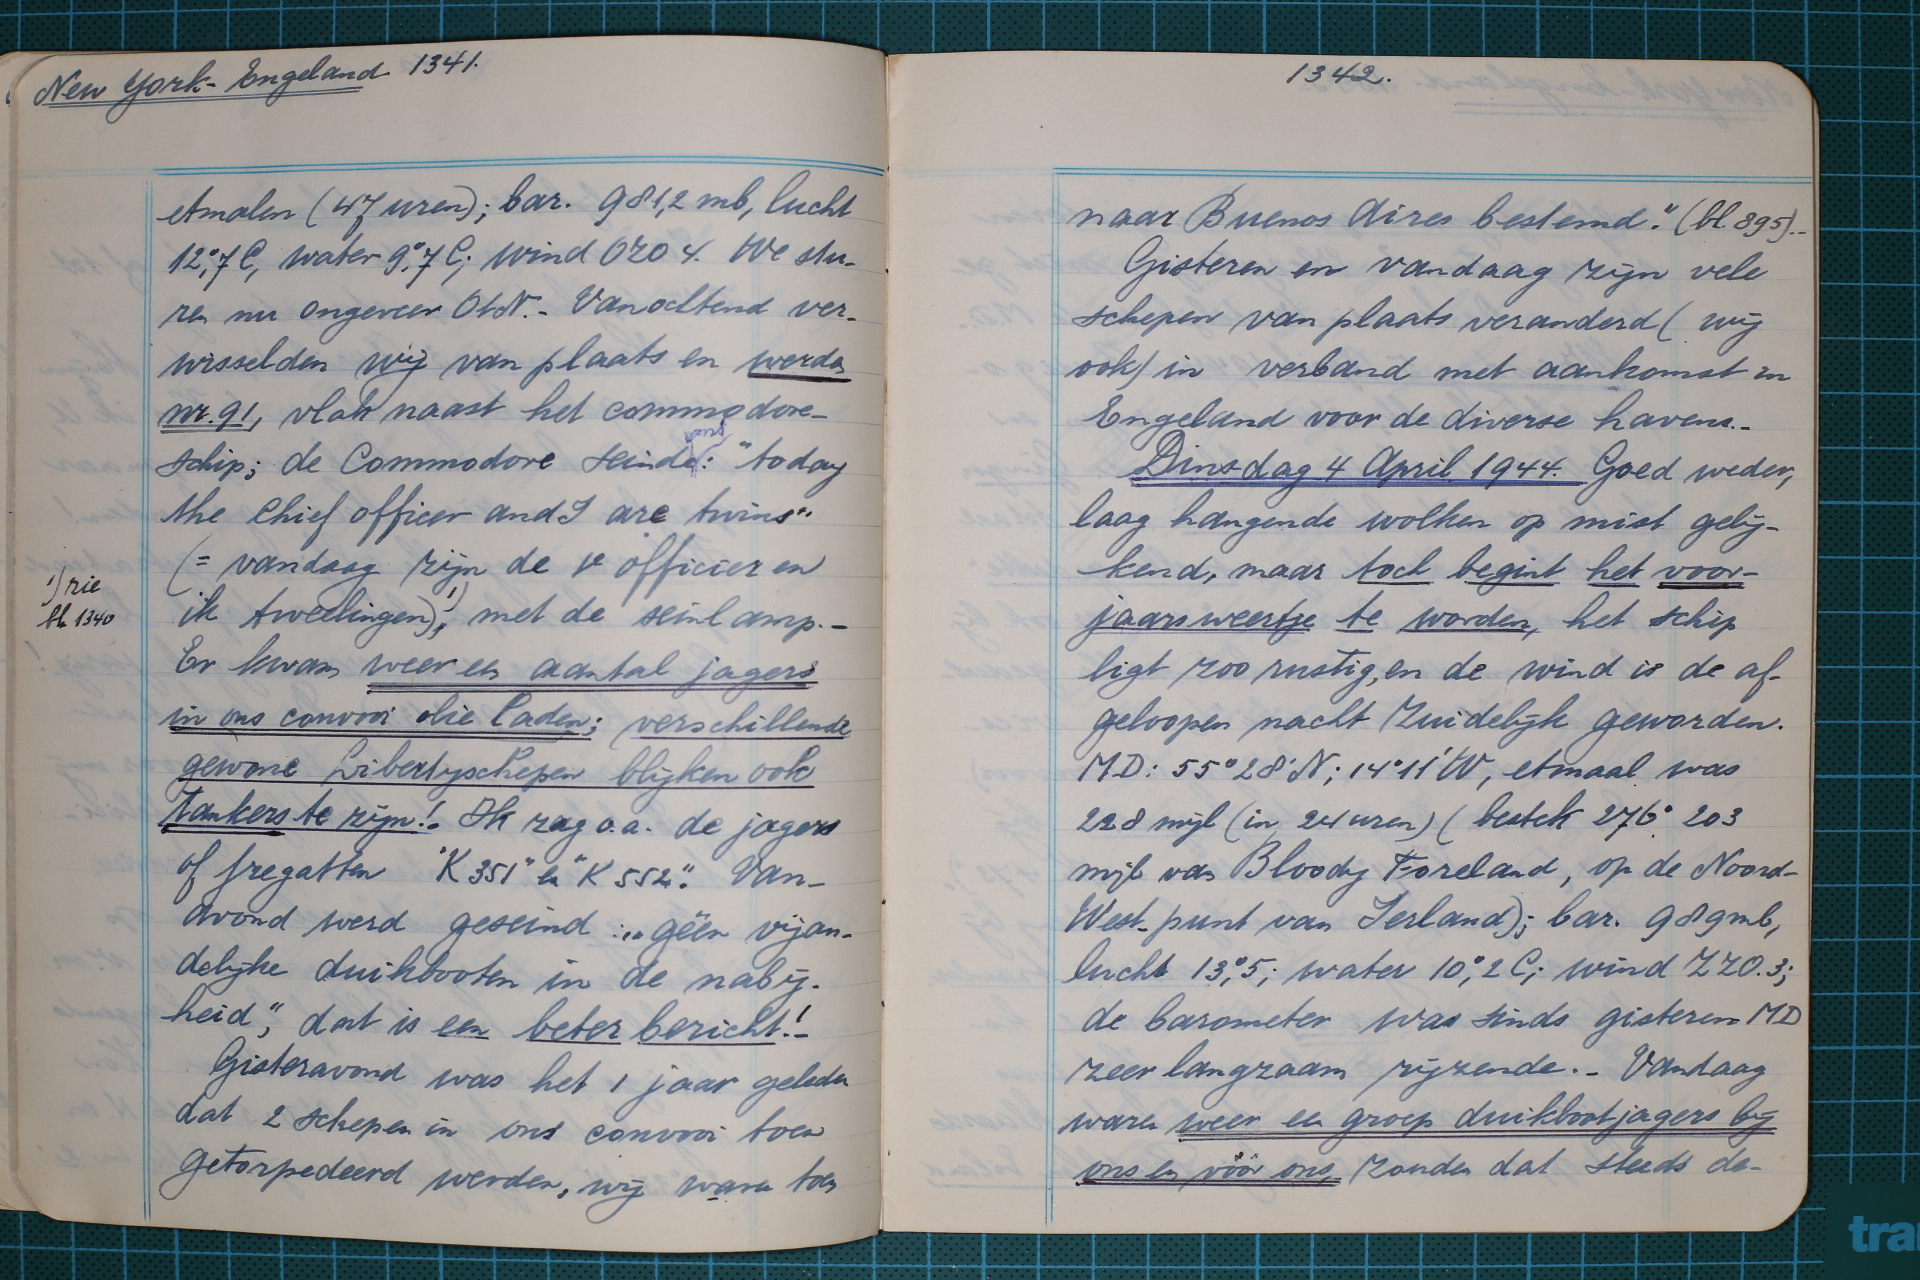 New York - Engeland 1341.
etmalen (47 uren); bar. 981,2 mb, lucht
12°,7 C, water 9°,7 C; wind OZO 4. We stu-
ren nu ongeveer OtN. - Vanochtend ver-
wisselden wij van plaats en werden
nr. 91, vlak naast het commodore-
schip; de Commodore seinde: "today
the Chief officer and I are twins"
(= vandaag zijn de 1e officier en
1) zie
bl. 1340
ik tweelingen)1), met de seinlamp. -
Er kwam weer een aantal jagers
in ons convooi olie laden; verschillende
gewone Libertyschepen blijken ook
Tankers te zijn!. Ik zag o.a. de jagers
of fregatten "K 351" en "K 552". Van-
avond werd geseind: "géén vijan-
delijke duikbooten in de nabij-
heid", dat is een beter bericht! -
Gisteravond was het 1 jaar geleden
dat 2 schepen in ons convooi toen
getorpedeerd werden, wij waren toen
1342.
naar Buenos Aires bestemd." (bl. 895). -
Gisteren en vandaag zijn vele
schepen van plaats veranderd (wij
ook) in verband met aankomst in
Engeland voor de diverse havens. -
Dinsdag 4 April 1944. Goed weder,
laag hangende wolken op mist gelij-
kend, maar toch begint het voor-
jaarsweertje te worden, het schip
ligt zoo rustig, en de wind is de af-
geloopen nacht Zuidelijk geworden.
MD: 55°28'N; 14°11'W, etmaal was
228 mijl (in 24 uren) (bestek 276° 203
mijl van Bloody Foreland, op de Noord-
West-punt van Ierland); bar. 989 mb,
lucht 13°,5; water 10°,2 C; wind ZZO. 3;
de barometer was sinds gisteren MD
zeer langzaam rijzende. - Vandaag
waren weer een groep duikbootjagers bij
ons en vóór ons, zonden dat steeds de-